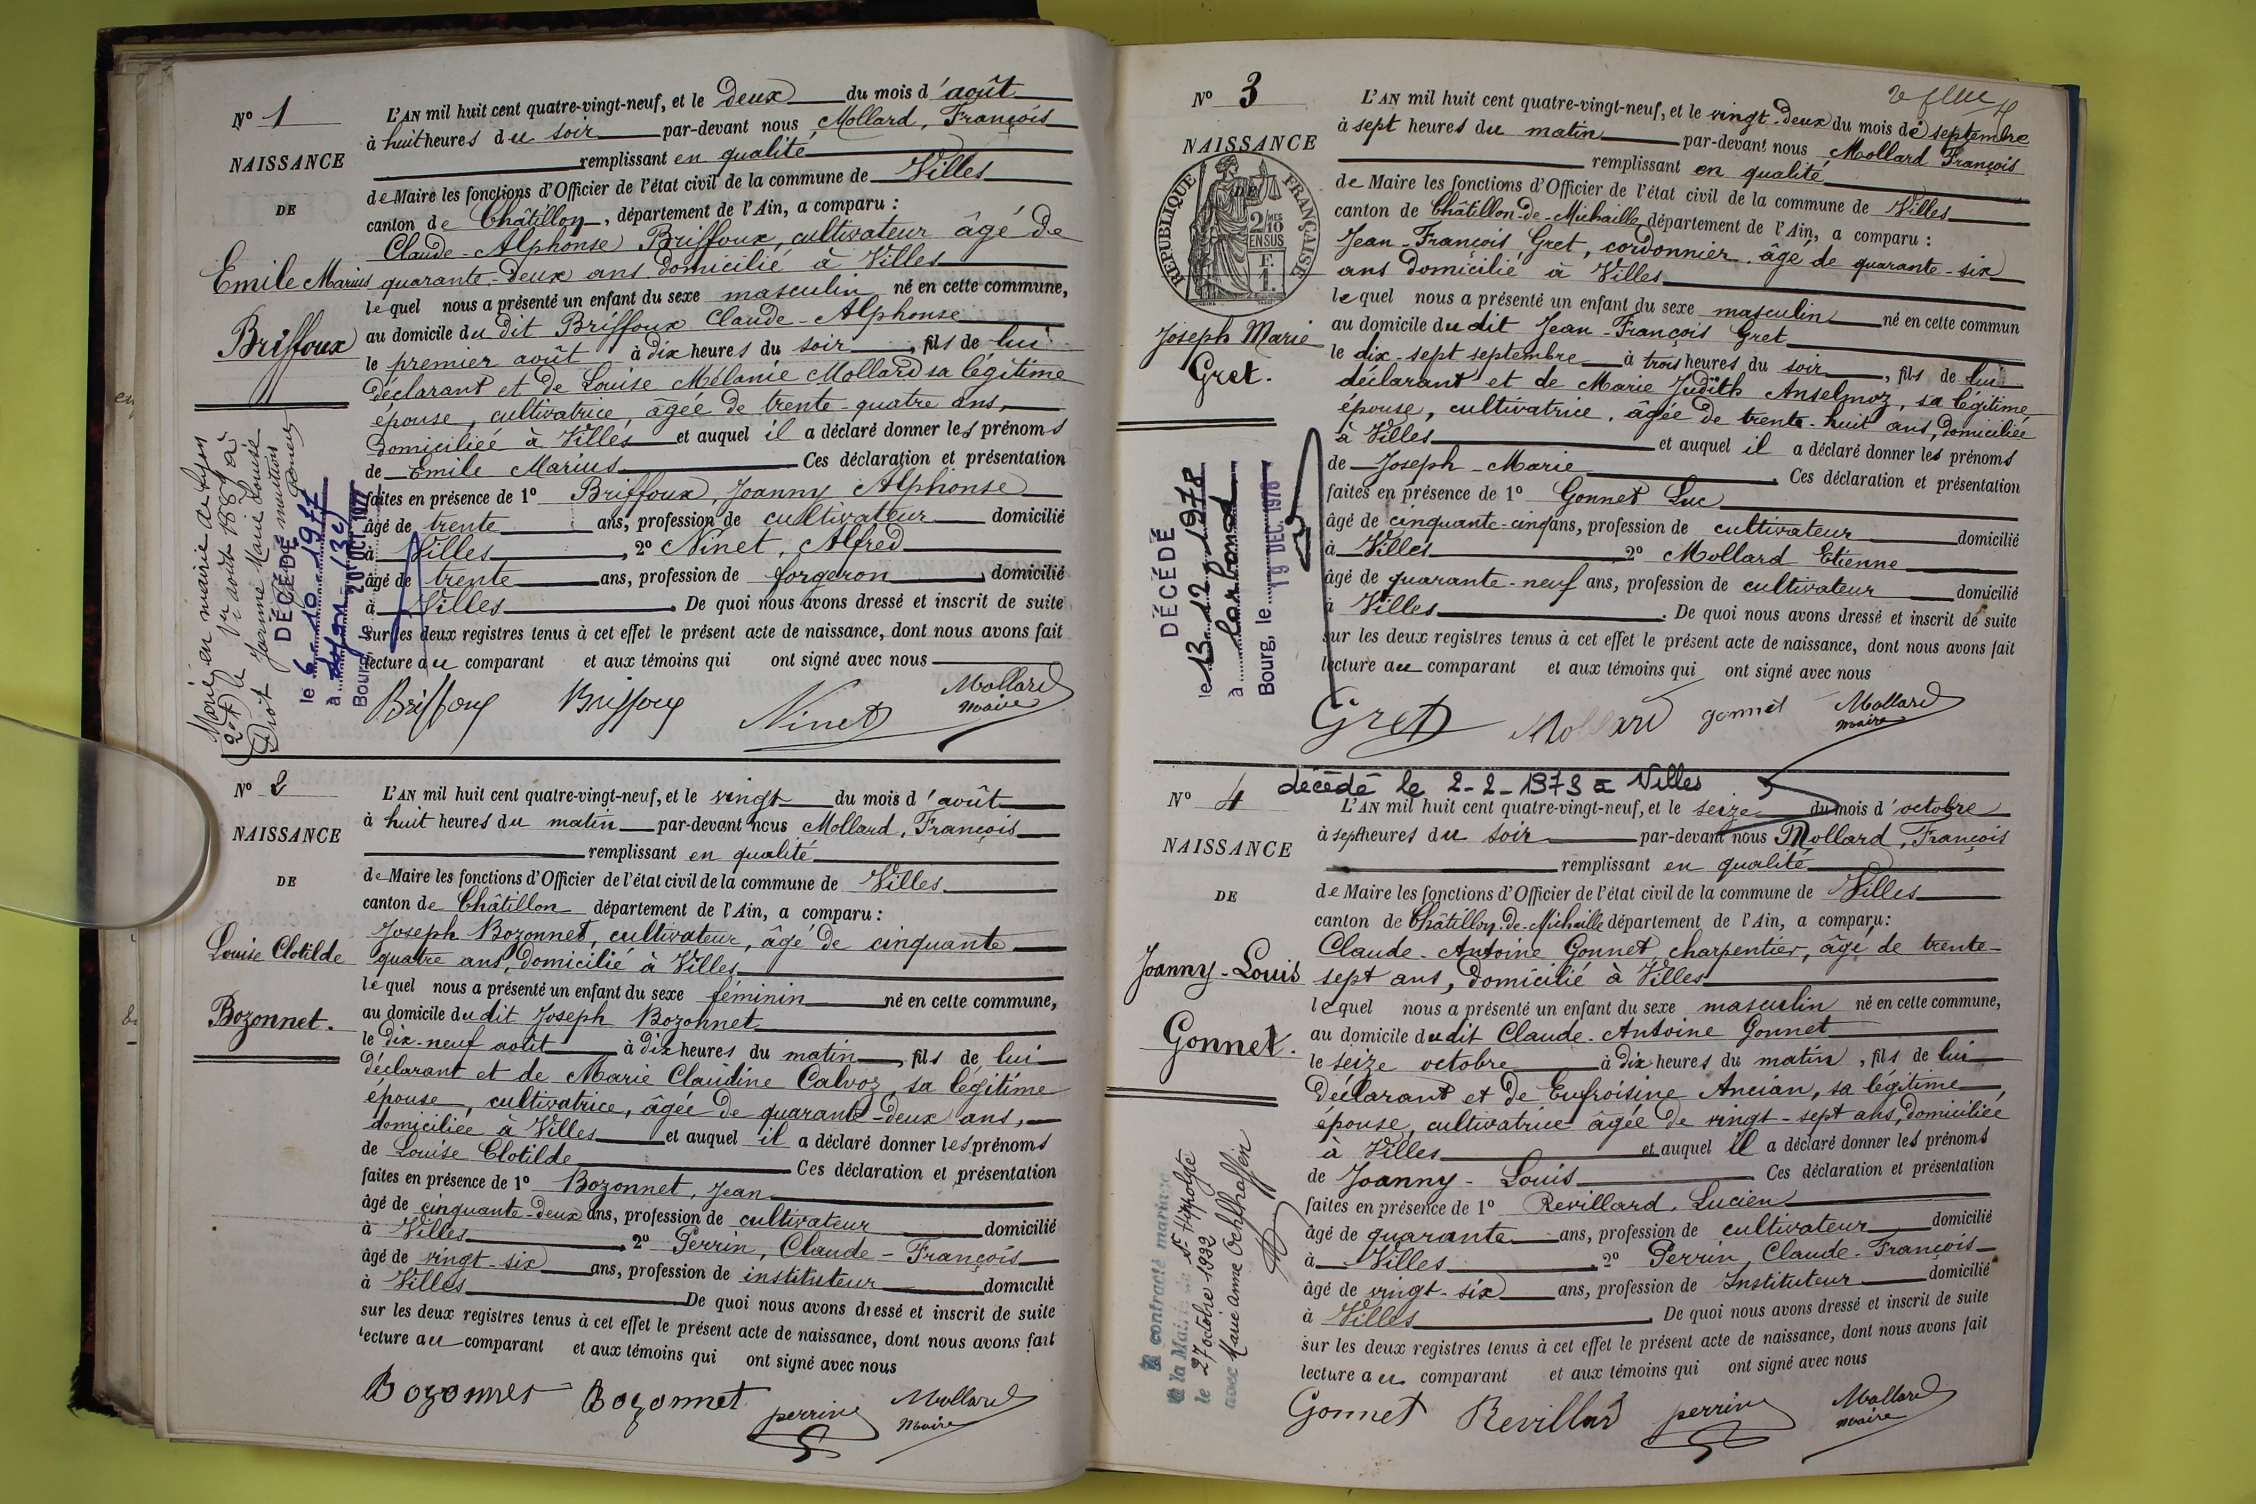 Nº 1
NAISSANCE
DE
Emile Marius
Briffoux
L'AN mil huit cent quatre-vingt-neuf, et le deux du mois d'août
à huit heures du soir par-devant nous Mollard, François
remplissant en qualité
de Maire les fonctions d'Officier de l'état civil de la commune de Villes
canton de Châtillon, département de l'Ain, a comparu :
Claude-Alphonse Briffoux, cultivateur âgé de
quarante-deux ans domicilié à Villes
lequel nous a présenté un enfant du sexe masculin né en cette commune,
au domicile du dit Briffoux Claude-Alphonse
le premier août à dix heures du soir, fils de lui
déclarant et de Louise Mélanie Mollard sa légitime
épouse, cultivatrice, âgée de trente-quatre ans,
domiciliée à Villes et auquel il a déclaré donner les prénoms
de Emile Marius Ces déclaration et présentation
faites en présence de 1º Briffoux, Joanny Alphonse
âgé de trente ans, profession de cultivateur domicilié
à Villes, 2º Ninet, Alfred
âgé de trente ans, profession de forgeron, domicilié
à Villes. De quoi nous avons dressé et inscrit de suite
sur les deux registres tenus à cet effet le présent acte de naissance, dont nous avons fait
lecture au comparant et aux témoins qui ont signé avec nous
Briffoux Briffoux Ninet Mollard
maire
Marié en mairie de Lyon
Marie Louise
DÉCÉDÉ
le 6-10-1977
à Lyon 13e
Bourg, le 20 OCT. 1977
Nº 2
NAISSANCE
DE
Louise Clotilde
Bozonnet.
L'AN mil huit cent quatre-vingt-neuf, et le vingt du mois d'août
à huit heures du matin par-devant nous Mollard, François
remplissant en qualité
de Maire les fonctions d'Officier de l'état civil de la commune de Villes
canton de Châtillon département de l'Ain, a comparu :
Joseph Bozonnet, cultivateur, âgé de cinquante
quatre ans, domicilié à Villes
lequel nous a présenté un enfant du sexe féminin né en cette commune,
au domicile du dit Joseph Bozonnet
le dix-neuf août à dix heures du matin, fils de lui
déclarant et de Marie Claudine Calvoz, sa légitime
épouse, cultivatrice, âgée de quarante-deux ans,
domiciliée à Villes et auquel il a déclaré donner les prénoms
de Louise Clotilde Ces déclaration et présentation
faites en présence de 1º Bozonnet, Jean
âgé de cinquante-deux ans, profession de cultivateur domicilié
à Villes, 2º Perrin, Claude-François
âgé de vingt-six ans, profession de instituteur domicilié
à Villes De quoi nous avons dressé et inscrit de suite
sur les deux registres tenus à cet effet le présent acte de naissance, dont nous avons fait
lecture au comparant et aux témoins qui ont signé avec nous
Bozonnet Bozonnet perrin Mollard
maire
Nº 3
NAISSANCE
DE
RÉPUBLIQUE FRANÇAISE
2/10
EN SUS
F.
1.
Joseph Marie
Gret.
L'AN mil huit cent quatre-vingt-neuf, et le vingt-deux du mois de septembre
à sept heures du matin par-devant nous Mollard François
remplissant en qualité
de Maire les fonctions d'Officier de l'état civil de la commune de Villes
canton de Châtillon-de-Michaille département de l'Ain, a comparu :
Jean-François Gret, cordonnier, âgé de quarante-six
ans domicilié à Villes
lequel nous a présenté un enfant du sexe masculin né en cette commun
au domicile du dit Jean-François Gret
le dix-sept septembre à trois heures du soir, fils de lui
déclarant et de Marie Judith Anselmoz, sa légitime
épouse, cultivatrice, âgée de trente-huit ans, domiciliée
à Villes et auquel il a déclaré donner les prénoms
de Joseph-Marie. Ces déclaration et présentation
faites en présence de 1º Gonnet Luc
âgé de cinquante-cinq ans, profession de cultivateur domicilié
à Villes 2º Mollard Etienne
âgé de quarante-neuf ans, profession de cultivateur domicilié
à Villes. De quoi nous avons dressé et inscrit de suite
sur les deux registres tenus à cet effet le présent acte de naissance, dont nous avons fait
lecture au comparant et aux témoins qui ont signé avec nous
Gret Mollard gonnet Mollard
maire
DÉCÉDÉ
le 13.12.1978
à
Bourg, le 19 DEC. 1978
décédé le 2-2-1973 à Villes
Nº 4
NAISSANCE
DE
Joanny-Louis
Gonnet.
L'AN mil huit cent quatre-vingt-neuf, et le seize du mois d'octobre
à sept heures du soir par-devant nous Mollard, François
remplissant en qualité
de Maire les fonctions d'Officier de l'état civil de la commune de Villes
canton de Châtillon-de-Michaille département de l'Ain, a comparu :
Claude-Antoine Gonnet, charpentier, âgé de trente-
sept ans, domicilié à Villes
lequel nous a présenté un enfant du sexe masculin né en cette commune,
au domicile du dit Claude-Antoine Gonnet
le seize octobre à dix heures du matin, fils de lui
déclarant et de Eufroisine Ancian, sa légitime
épouse, cultivatrice âgée de vingt-sept ans, domiciliée
à Villes et auquel il a déclaré donner les prénoms
de Joanny-Louis Ces déclaration et présentation
faites en présence de 1º Revillard, Lucien
âgé de quarante ans, profession de cultivateur domicilié
à Villes, 2º Perrin, Claude-François
âgé de vingt-six ans, profession de Instituteur domicilié
à Villes. De quoi nous avons dressé et inscrit de suite
sur les deux registres tenus à cet effet le présent acte de naissance, dont nous avons fait
lecture au comparant et aux témoins qui ont signé avec nous
Gonnet Revillard perrin Mollard
maire
A contracté mariage
à la Mairie de St Hippolyte
le 27 octobre 1932
avec Marie Anne Oehlhaffen